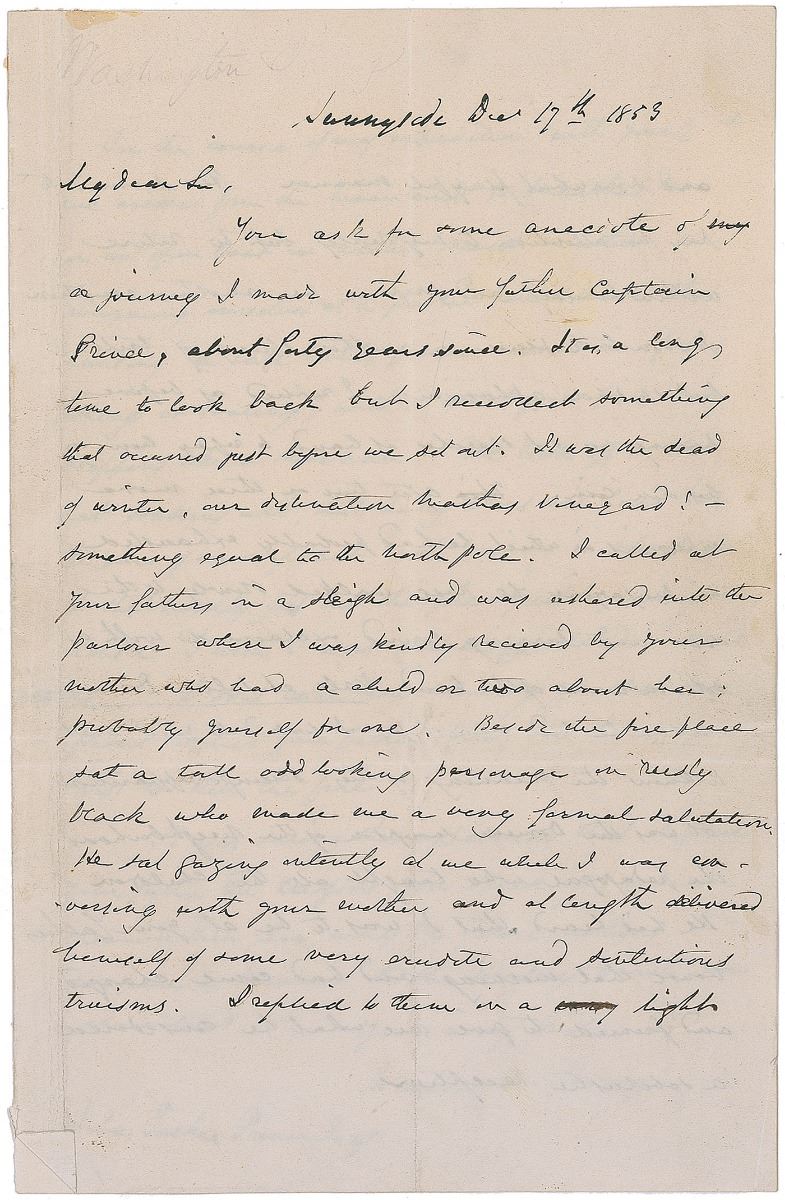 Washington
Sunnyside Dec 17th 1853
My dear Sir,
You ask for some anecdote of my
a journey I made with your father Captain
Prince, about forty years since. It is a long
time to look back but I recollect something
that occurred just before we set out. It was the dead
of winter, our destination Marthas Vineyard! –
something equal to the north pole. I called at
your fathers in a sleigh and was ushered into the
parlour where I was kindly recieved by your
mother who had a child or two about her;
probably yourself for one. Beside the fire place
sat a tall odd looking personage in rusty
black who made me a very formal salutation.
He sat gazing intently at me while I was con-
versing with your mother and at length delivered
himself of some very erudite and sententious
truisms. I replied to them in a light